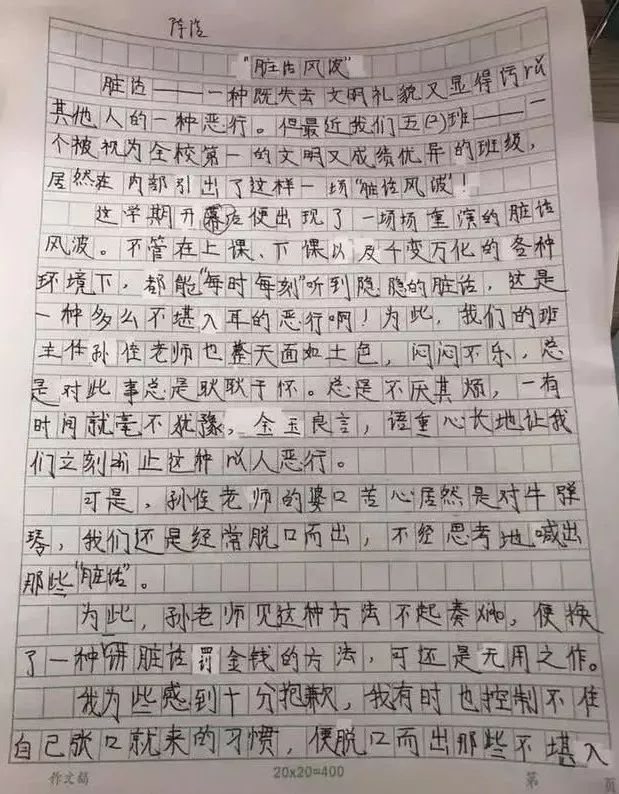 陈浩
“脏话风波”
脏话——一种既失去文明礼貌又显得污
其他人的一种恶行。但最近我们五(2)班——一
个被视为全校第一的文明又成绩优异的班级，
居然在内部引出了这样一场“脏话风波”！
这学期开幕后便出现了一场场重演的脏话
风波。不管在上课、下课以及千变万化的各种
环境下，都能“每时每刻”听到隐隐的脏话，这是
一种多么不堪入耳的恶行啊！为此，我们的班
主任孙佳老师也整天面如土色，闷闷不乐，总
是对此事总是耿耿于怀。总是不厌其烦，一有
时间就毫不犹豫，金玉良言，语重心长地让我
们立刻停止这种人恶行。
可是，孙佳老师的婆口苦心居然是对牛弹
琴，我们还是经常脱口而出，不经思考地喊出
那些“脏话”。
为此，孙老师见这种方法不起奏效，便换
了一种讲脏话罚金钱的方法，可还是无用之作。
我为些感到十分抱歉，我有时也控制不住
自己张口就来的习惯，便脱口而出那些不堪入
作文稿 20×20=400 第 页